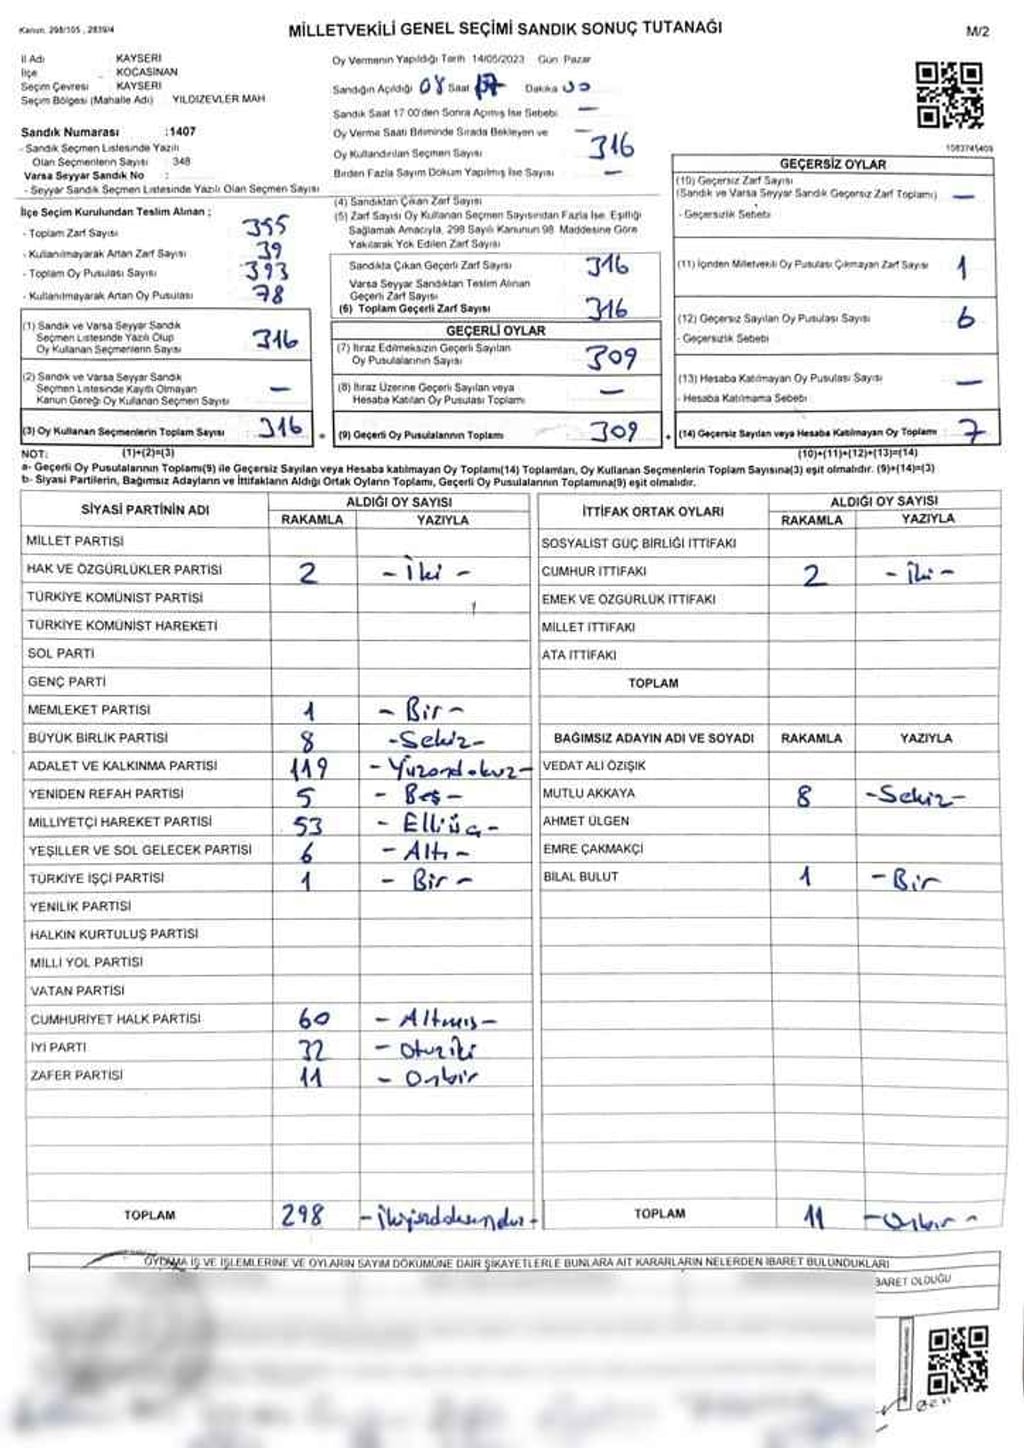 Kanun: 298/105, 2839/4
MİLLETVEKİLİ GENEL SEÇİMİ SANDIK SONUÇ TUTANAĞI
M/2
İl Adı KAYSERİ
İlçe KOCASİNAN
Seçim Çevresi KAYSERİ
Seçim Bölgesi (Mahalle Adı) YILDIZEVLER MAH
Sandık Numarası :1407
- Sandık Seçmen Listesinde Yazılı
Olan Seçmenlerin Sayısı 348
Varsa Seyyar Sandık No :
- Seyyar Sandık Seçmen Listesinde Yazılı Olan Seçmen Sayısı
Oy Vermenin Yapıldığı Tarih 14/05/2023 Gün Pazar
Sandığın Açıldığı 08 Saat 17 Dakika 00
Sandık Saat 17.00'den Sonra Açılmış İse Sebebi -
Oy Verme Saati Bitiminde Sırada Bekleyen ve -
Oy Kullandırılan Seçmen Sayısı 316
Birden Fazla Sayım Döküm Yapılmış İse Sayısı -
1083745409
İlçe Seçim Kurulundan Teslim Alınan ;
- Toplam Zarf Sayısı 355
- Kullanılmayarak Artan Zarf Sayısı 39
- Toplam Oy Pusulası Sayısı 393
- Kullanılmayarak Artan Oy Pusulası 78
(1) Sandık ve Varsa Seyyar Sandık
Seçmen Listesinde Yazılı Olup
Oy Kullanan Seçmenlerin Sayısı 316
(2) Sandık ve Varsa Seyyar Sandık
Seçmen Listesinde Kayıtlı Olmayan
Kanun Gereği Oy Kullanan Seçmen Sayısı -
(3) Oy Kullanan Seçmenlerin Toplam Sayısı 316
(1)+(2)=(3)
(4) Sandıktan Çıkan Zarf Sayısı
(5) Zarf Sayısı Oy Kullanan Seçmen Sayısından Fazla İse, Eşitliği
Sağlamak Amacıyla, 298 Sayılı Kanunun 98. Maddesine Göre
Yakılarak Yok Edilen Zarf Sayısı
Sandıkta Çıkan Geçerli Zarf Sayısı 316
Varsa Seyyar Sandıktan Teslim Alınan
Geçerli Zarf Sayısı
(6) Toplam Geçerli Zarf Sayısı 316
GEÇERLİ OYLAR
(7) İtiraz Edilmeksizin Geçerli Sayılan
Oy Pusulalarının Sayısı 309
(8) İtiraz Üzerine Geçerli Sayılan veya
Hesaba Katılan Oy Pusulası Toplamı -
(9) Geçerli Oy Pusulalarının Toplamı 309
GEÇERSİZ OYLAR
(10) Geçersiz Zarf Sayısı
(Sandık ve Varsa Seyyar Sandık Geçersiz Zarf Toplamı) -
- Geçersizlik Sebebi
(11) İçinden Milletvekili Oy Pusulası Çıkmayan Zarf Sayısı 1
(12) Geçersiz Sayılan Oy Pusulası Sayısı 6
- Geçersizlik Sebebi
(13) Hesaba Katılmayan Oy Pusulası Sayısı -
- Hesaba Katılmama Sebebi
(14) Geçersiz Sayılan veya Hesaba Katılmayan Oy Toplamı 7
(10)+(11)+(12)+(13)=(14)
NOT:
a- Geçerli Oy Pusulalarının Toplamı(9) ile Geçersiz Sayılan veya Hesaba katılmayan Oy Toplamı(14) Toplamları, Oy Kullanan Seçmenlerin Toplam Sayısına(3) eşit olmalıdır. (9)+(14)=(3)
b- Siyasi Partilerin, Bağımsız Adayların ve İttifakların Aldığı Ortak Oyların Toplamı, Geçerli Oy Pusulalarının Toplamına(9) eşit olmalıdır.
SİYASİ PARTİNİN ADI ALDIĞI OY SAYISI
RAKAMLA YAZIYLA
MİLLET PARTİSİ
HAK VE ÖZGÜRLÜKLER PARTİSİ 2 - İki -
TÜRKİYE KOMÜNİST PARTİSİ
TÜRKİYE KOMÜNİST HAREKETİ
SOL PARTİ
GENÇ PARTİ
MEMLEKET PARTİSİ 1 - Bir -
BÜYÜK BİRLİK PARTİSİ 8 - Sekiz -
ADALET VE KALKINMA PARTİSİ 119 - Yüzondokuz -
YENİDEN REFAH PARTİSİ 5 - Beş -
MİLLİYETÇİ HAREKET PARTİSİ 53 - Elliüç -
YEŞİLLER VE SOL GELECEK PARTİSİ 6 - Altı -
TÜRKİYE İŞÇİ PARTİSİ 1 - Bir -
YENİLİK PARTİSİ
HALKIN KURTULUŞ PARTİSİ
MİLLİ YOL PARTİSİ
VATAN PARTİSİ
CUMHURİYET HALK PARTİSİ 60 - Altmış -
İYİ PARTİ 32 - Otuziki
ZAFER PARTİSİ 11 - Onbir
TOPLAM 298 - İkiyüzdoksansekiz -
İTTİFAK ORTAK OYLARI ALDIĞI OY SAYISI
RAKAMLA YAZIYLA
SOSYALİST GÜÇ BİRLİĞİ İTTİFAKI
CUMHUR İTTİFAKI 2 - İki -
EMEK VE ÖZGÜRLÜK İTTİFAKI
MİLLET İTTİFAKI
ATA İTTİFAKI
TOPLAM
BAĞIMSIZ ADAYIN ADI VE SOYADI RAKAMLA YAZIYLA
VEDAT ALİ ÖZIŞIK
MUTLU AKKAYA 8 - Sekiz -
AHMET ÜLGEN
EMRE ÇAKMAKÇİ
BİLAL BULUT 1 - Bir
TOPLAM 11 - Onbir -
OYLAMA İŞ VE İŞLEMLERİNE VE OYLARIN SAYIM DÖKÜMÜNE DAİR ŞİKAYETLERLE BUNLARA AİT KARARLARIN NELERDEN İBARET BULUNDUKLARI
BARET OLDUĞU